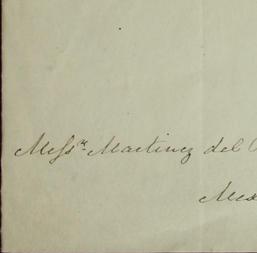 Messrs Martinez del
Mex